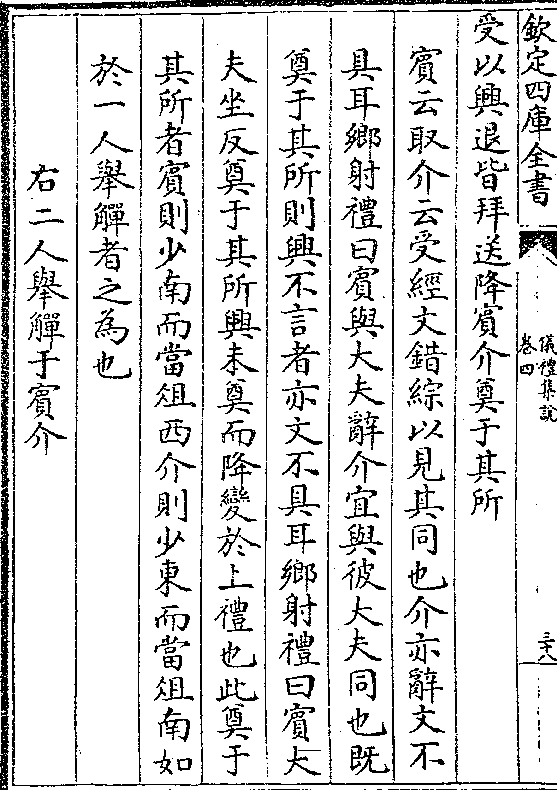 欽定四庫全書
儀禮集説
卷四
三十八
受以興退皆拜送降賓介奠于其所
賓云取介云受經文錯綜以見其同也介亦辭文不
具耳鄉射禮曰賓與大夫辭介宜與彼大夫同也既
奠于其所則興不言者亦文不具耳鄉射禮曰賓大
夫坐反奠于其所興未奠而降變於上禮也此奠于
其所者賓則少南而當俎西介則少東而當俎南如
於一人舉觶者之為也
右二人舉觶于賓介